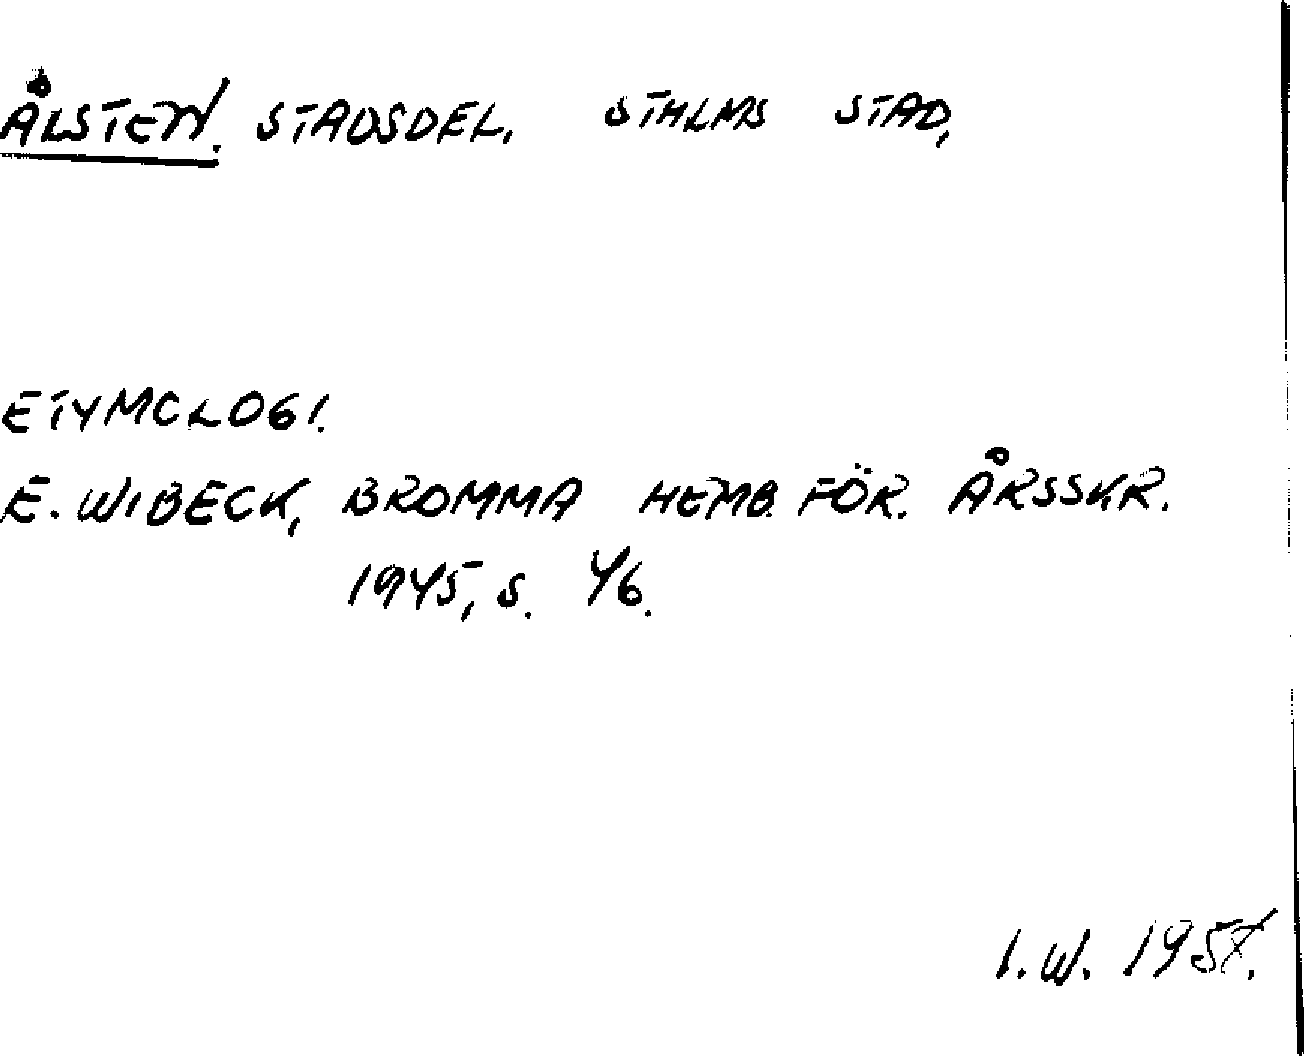 ÅLSTEN. STADSDEL, STHLMS STAD,
ETYMOLOGI.
E. WIBECK, BROMMA HEMB. FÖR. ÅRSSKR.
1945, S. 46.
I.W.